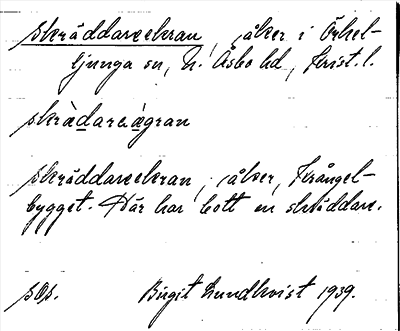 Skräddareekran, åker i Örkel-
ljunga sn, N. Åsbo hd, Krist. l.
skràdareàgran
Skräddareekran, åker, Krångel-
bygget. Här har bott en skräddare.
sOs. Birgit Lundkvist 1939.